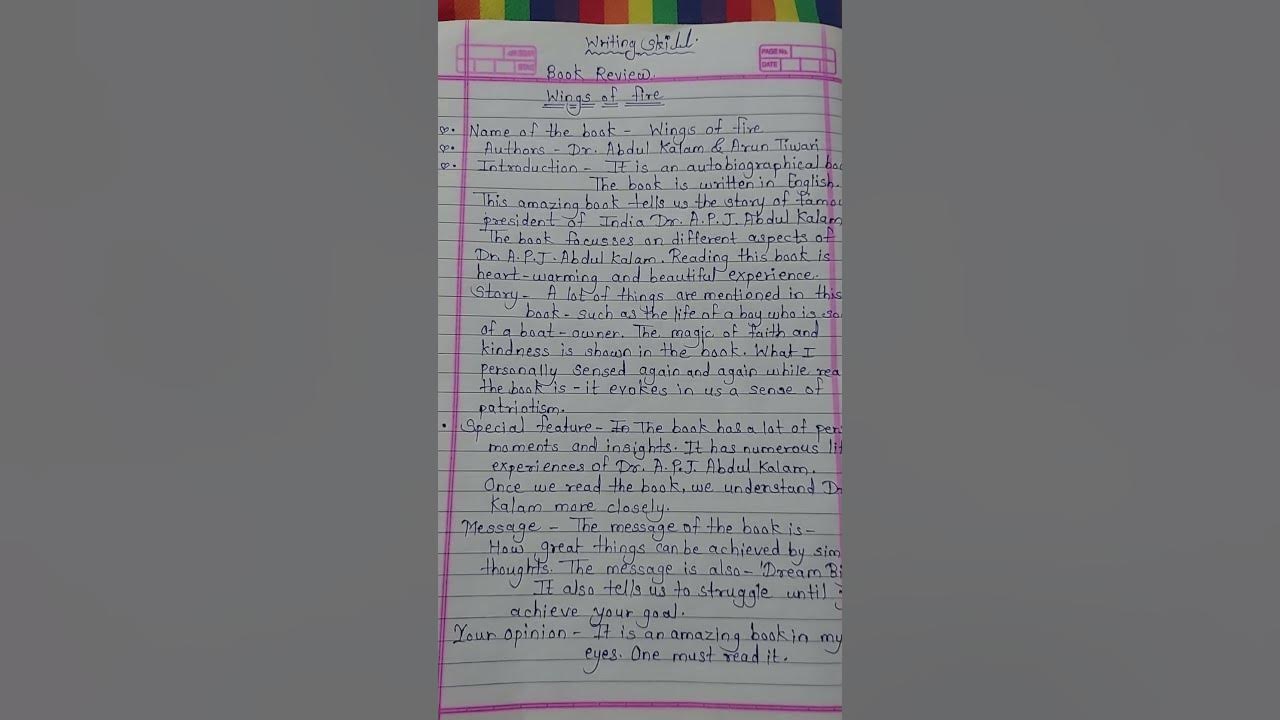 Writing Skill.
PAGE No.
DATE
Book Review.
Wings of fire
Name of the book - Wings of fire
Authors - Dr. Abdul Kalam & Arun Tiwari
Introduction - It is an autobiographical
The book is written in English.
This amazing book tells us the story of
president of India Dr. A.P.J. Abdul Kalam
The book focusses on different aspects of
Dr. A.P.J. Abdul Kalam. Reading this book is
heart-warming and beautiful experience.
Story - A lot of things are mentioned in this
book - such as the life of a boy who is
of a boat-owner. The magic of faith and
kindness is shown in the book. What I
personally sensed again and again while
the book is - it evokes in us a sense of
patriotism.
Special feature - The book has a lot of
moments and insights. It has numerous
experiences of Dr. A.P.J. Abdul Kalam.
Once we read the book, we understand
Kalam more closely.
Message - The message of the book is -
How great things can be achieved by
thoughts. The message is also - 'Dream
It also tells us to struggle until
achieve your goal.
Your opinion - It is an amazing book in my
eyes. One must read it.